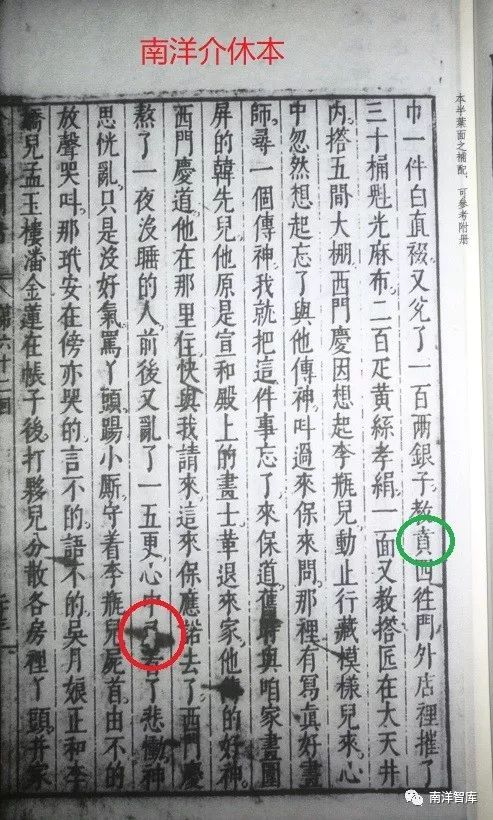 南洋介休本
本半葉面之補配，可參考附册
巾一件白直裰又兊了一百兩銀子教賁四徃門外店裡摧了
三十桶魁光麻布二百疋黃絲孝絹一面又教搭匠在大天井
内搭五間大棚西門慶因想起李瓶兒動止行藏模樣兒來心
中忽然想起忘了與他傳神叫過來保來問那裡有寫眞好畫
師尋一個傳神我就把這件事忘了來保道舊時與咱家畫圍
屏的韓先兒他原是宣和殿上的畫士革退來家他的好神
西門慶道他在那里住快與我請來這來保應諾去了西門慶
熬了一夜沒睡的人前後又亂了一五更心中着了悲慟神
思恍亂只是沒好氣罵丫頭踢小厮守着李瓶兒屍首由不的
放聲哭叫那玳安在傍亦哭的言不的語不的吳月娘正和李
嬌兒孟玉樓潘金蓮在帳子後打夥兒分散各房裡丫頭并家
第六十二回
南洋智库